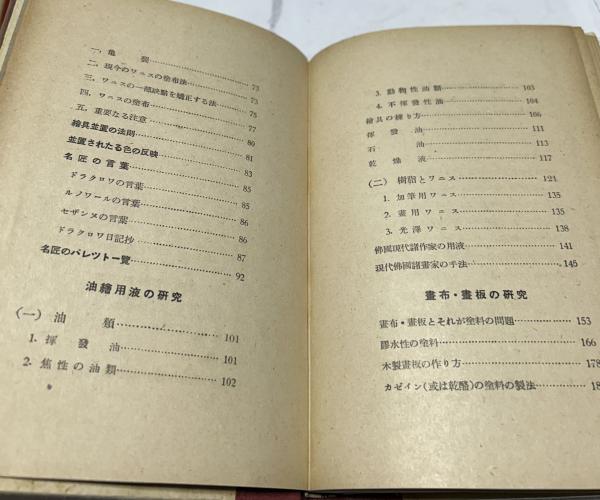 一、亀裂……73
二、現今のワニスの塗布法……73
三、ワニスの一部缺點を矯正する法……75
四、ワニスの塗布……77
五、重要なる注意……80
繪具並置の法則……81
並置されたる色の反映……83
名匠の言葉……85
ドラクロワの言葉……85
ルノワールの言葉……86
セザンヌの言葉……86
ドラクロワ日記抄……87
名匠のパレット一覽……92
油繪用液の硏究
(一) 油類……101
1. 揮發油……101
2. 焦性の油類……102
3. 動物性油類……103
4. 不揮發性油……104
繪具の練り方……106
揮發油……111
石油……113
乾燥液……117
(二) 樹脂とワニス……124
1. 加筆用ワニス……135
2. 畫用ワニス……135
3. 光澤ワニス……138
佛國現代諸作家の用液……141
現代佛國諸畫家の手法……145
畫布・畫板の硏究
畫布・畫板とそれが塗料の問題……153
膠水性の塗料……166
木製畫板の作り方……178
カゼイン(或は乾酪)の塗料の製法……18